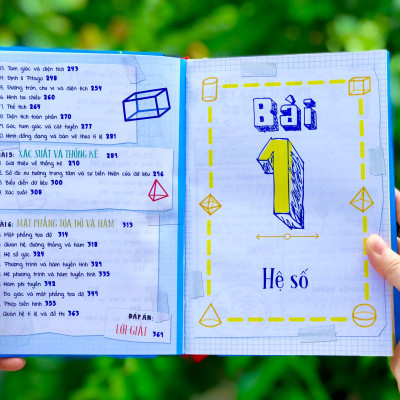 13. Tam giác và diện tích 243
14. Định lí Pitago 248
15. Đường tròn, chu vi và diện tích 254
16. Hình ba chiều 260
17. Thể tích 264
18. Diện tích toàn phần 270
19. Góc, tam giác và cát tuyến 277
Hình đồng dạng và bản vẽ theo tỉ lệ 281
BÀI 5: XÁC SUẤT VÀ THỐNG KÊ 289
Giới thiệu về thống kê 290
Số đo xu hướng trung tâm và sự biến thiên của dữ liệu 296
Biểu diễn dữ liệu 300
Xác suất 308
BÀI 6: MẶT PHẲNG TỌA ĐỘ VÀ HÀM 313
Mặt phẳng tọa độ 314
Quan hệ, đường thẳng và hàm 318
Hệ số góc 324
Phương trình và hàm tuyến tính 329
Hệ phương trình và hàm tuyến tính 335
Hàm phi tuyến 342
Đa giác và mặt phẳng tọa độ 349
Phép biến hình 355
Quan hệ tỉ lệ và đồ thị 363
ĐÁP ÁN:
LỜI GIẢI 369
Bài
1
Hệ số